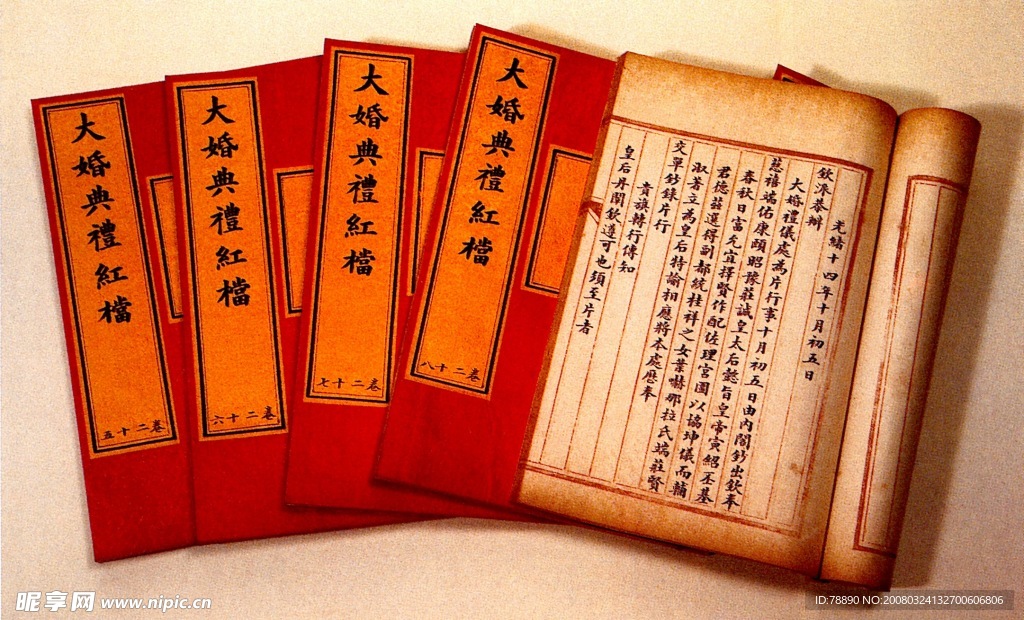 大婚典禮紅檔
五十二卷
大婚典禮紅檔
六十二卷
大婚典禮紅檔
七十二卷
大婚典禮紅檔
八十二卷
光緒十四年十月初五日
欽派恭辦
大婚禮儀處為片行事十月初五日由內閣鈔出欽奉
慈禧端佑康頤昭豫莊誠皇太后懿旨皇帝寅紹丕基
春秋日富允宜擇賢作配佐理宮闈以協坤儀而輔
君德茲選得副都統桂祥之女葉赫那拉氏端莊賢
淑著立為皇后特諭相應將本處應奉
交單鈔錄片行
貴旗轉行傳知
皇后丹闡欽遵可也須至片者
昵享网 www.nipic.cn
ID:78890 NO:20080324132700606806